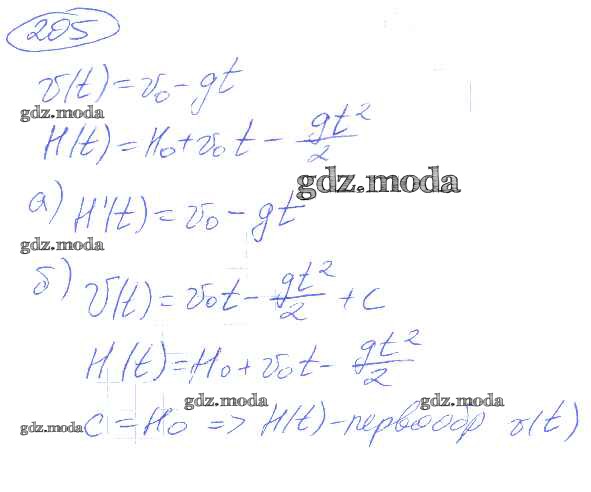 205
v(t) = v₀ - gt
gdz.moda
H(t) = H₀ + v₀t - gt²/2
gdz.moda
а) H'(t) = v₀ - gt
gdz.moda
б) V(t) = v₀t - gt²/2 + C
H(t) = H₀ + v₀t - gt²/2
gdz.moda gdz.moda
gdz.moda C = H₀ => H(t) - первообр v(t)